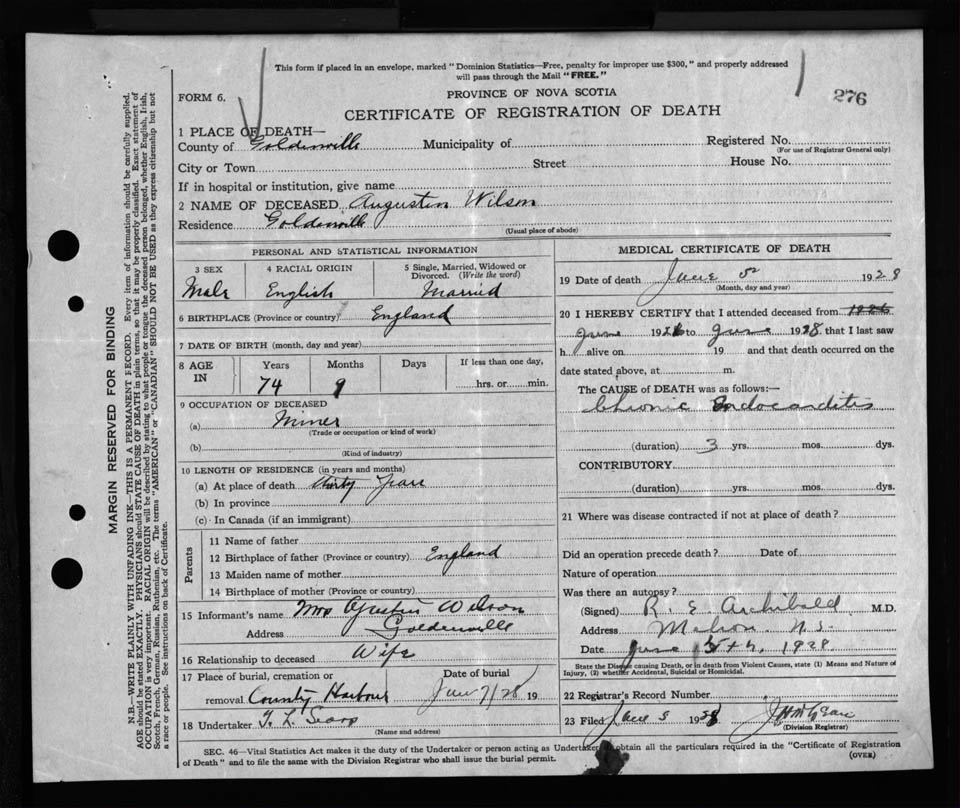 This form if placed in an envelope, marked "Dominion Statistics—Free, penalty for improper use $300," and properly addressed
will pass through the Mail "FREE."
PROVINCE OF NOVA SCOTIA
FORM 6.
276
CERTIFICATE OF REGISTRATION OF DEATH
1 PLACE OF DEATH—
County of Goldenville Municipality of Registered No.
(For use of Registrar General only)
City or Town Street House No.
If in hospital or institution, give name
2 NAME OF DECEASED Augustin Wilson
Residence Goldenville
(Usual place of abode)
PERSONAL AND STATISTICAL INFORMATION
3 SEX 4 RACIAL ORIGIN 5 Single, Married, Widowed or Divorced. (Write the word)
Male English Married
6 BIRTHPLACE (Province or country) England
7 DATE OF BIRTH (month, day and year)
8 AGE IN Years Months If less than one day,
74 9 hrs. or min.
9 OCCUPATION OF DECEASED
(a) Miner
(Trade or occupation or kind of work)
(b)
(Kind of industry)
10 LENGTH OF RESIDENCE (in years and months)
(a) At place of death thirty years
(b) In province
(c) In Canada (if an immigrant)
Parents
11 Name of father
12 Birthplace of father (Province or country) England
13 Maiden name of mother
14 Birthplace of mother (Province or country)
15 Informant's name Mrs Wilson
Address Goldenville
16 Relationship to deceased Wife
17 Place of burial, cremation or Date of burial
removal Country Harbour June 7/28 19
18 Undertaker
(Name and address)
MEDICAL CERTIFICATE OF DEATH
19 Date of death June 5 1928
(Month, day and year)
20 I HEREBY CERTIFY that I attended deceased from 1926
June 1926 to June 1928 that I last saw
h alive on 19 and that death occurred on the
date stated above, at m.
The CAUSE of DEATH was as follows:—
Chronic Endocarditis
(duration) 3 yrs. mos. dys.
CONTRIBUTORY
(duration) yrs. mos. dys.
21 Where was disease contracted if not at place of death?
Did an operation precede death? Date of
Nature of operation
Was there an autopsy?
(Signed) R. E. Archibald M.D.
Address N.S.
Date June 1928
State the Disease causing Death, or in death from Violent Causes, state (1) Means and Nature of
Injury, (2) whether Accidental, Suicidal or Homicidal.
22 Registrar's Record Number
23 Filed June 5 1928
(Division Registrar)
SEC. 46—Vital Statistics Act makes it the duty of the Undertaker or person acting as Undertaker to obtain all the particulars required in the "Certificate of Registration
of Death" and to file the same with the Division Registrar who shall issue the burial permit.
(OVER)
MARGIN RESERVED FOR BINDING
N.B.—WRITE PLAINLY WITH UNFADING INK—THIS IS A PERMANENT RECORD. Every item of information should be carefully supplied.
AGE should be stated EXACTLY. PHYSICIANS should STATE CAUSE OF DEATH in plain terms, so that it may be properly classified. Exact statement of
OCCUPATION is very important. RACIAL ORIGIN will be described by stating to what people or tongue the deceased person belonged, whether English, Irish,
Scotch, French, German, Russian, Ruthenian, etc. The terms "AMERICAN" or "CANADIAN" SHOULD NOT BE USED as they express citizenship but not
a race or people. See instructions on back of Certificate.